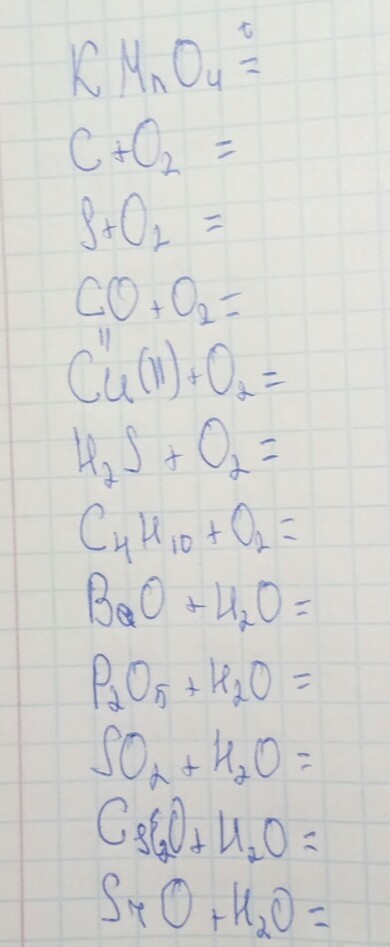 KMnO₄ =ᵗ
C + O₂ =
S + O₂ =
CO + O₂ =
Cu(II) + O₂ =
H₂S + O₂ =
C₄H₁₀ + O₂ =
BaO + H₂O =
P₂O₅ + H₂O =
SO₂ + H₂O =
Cs₂O + H₂O =
SrO + H₂O =